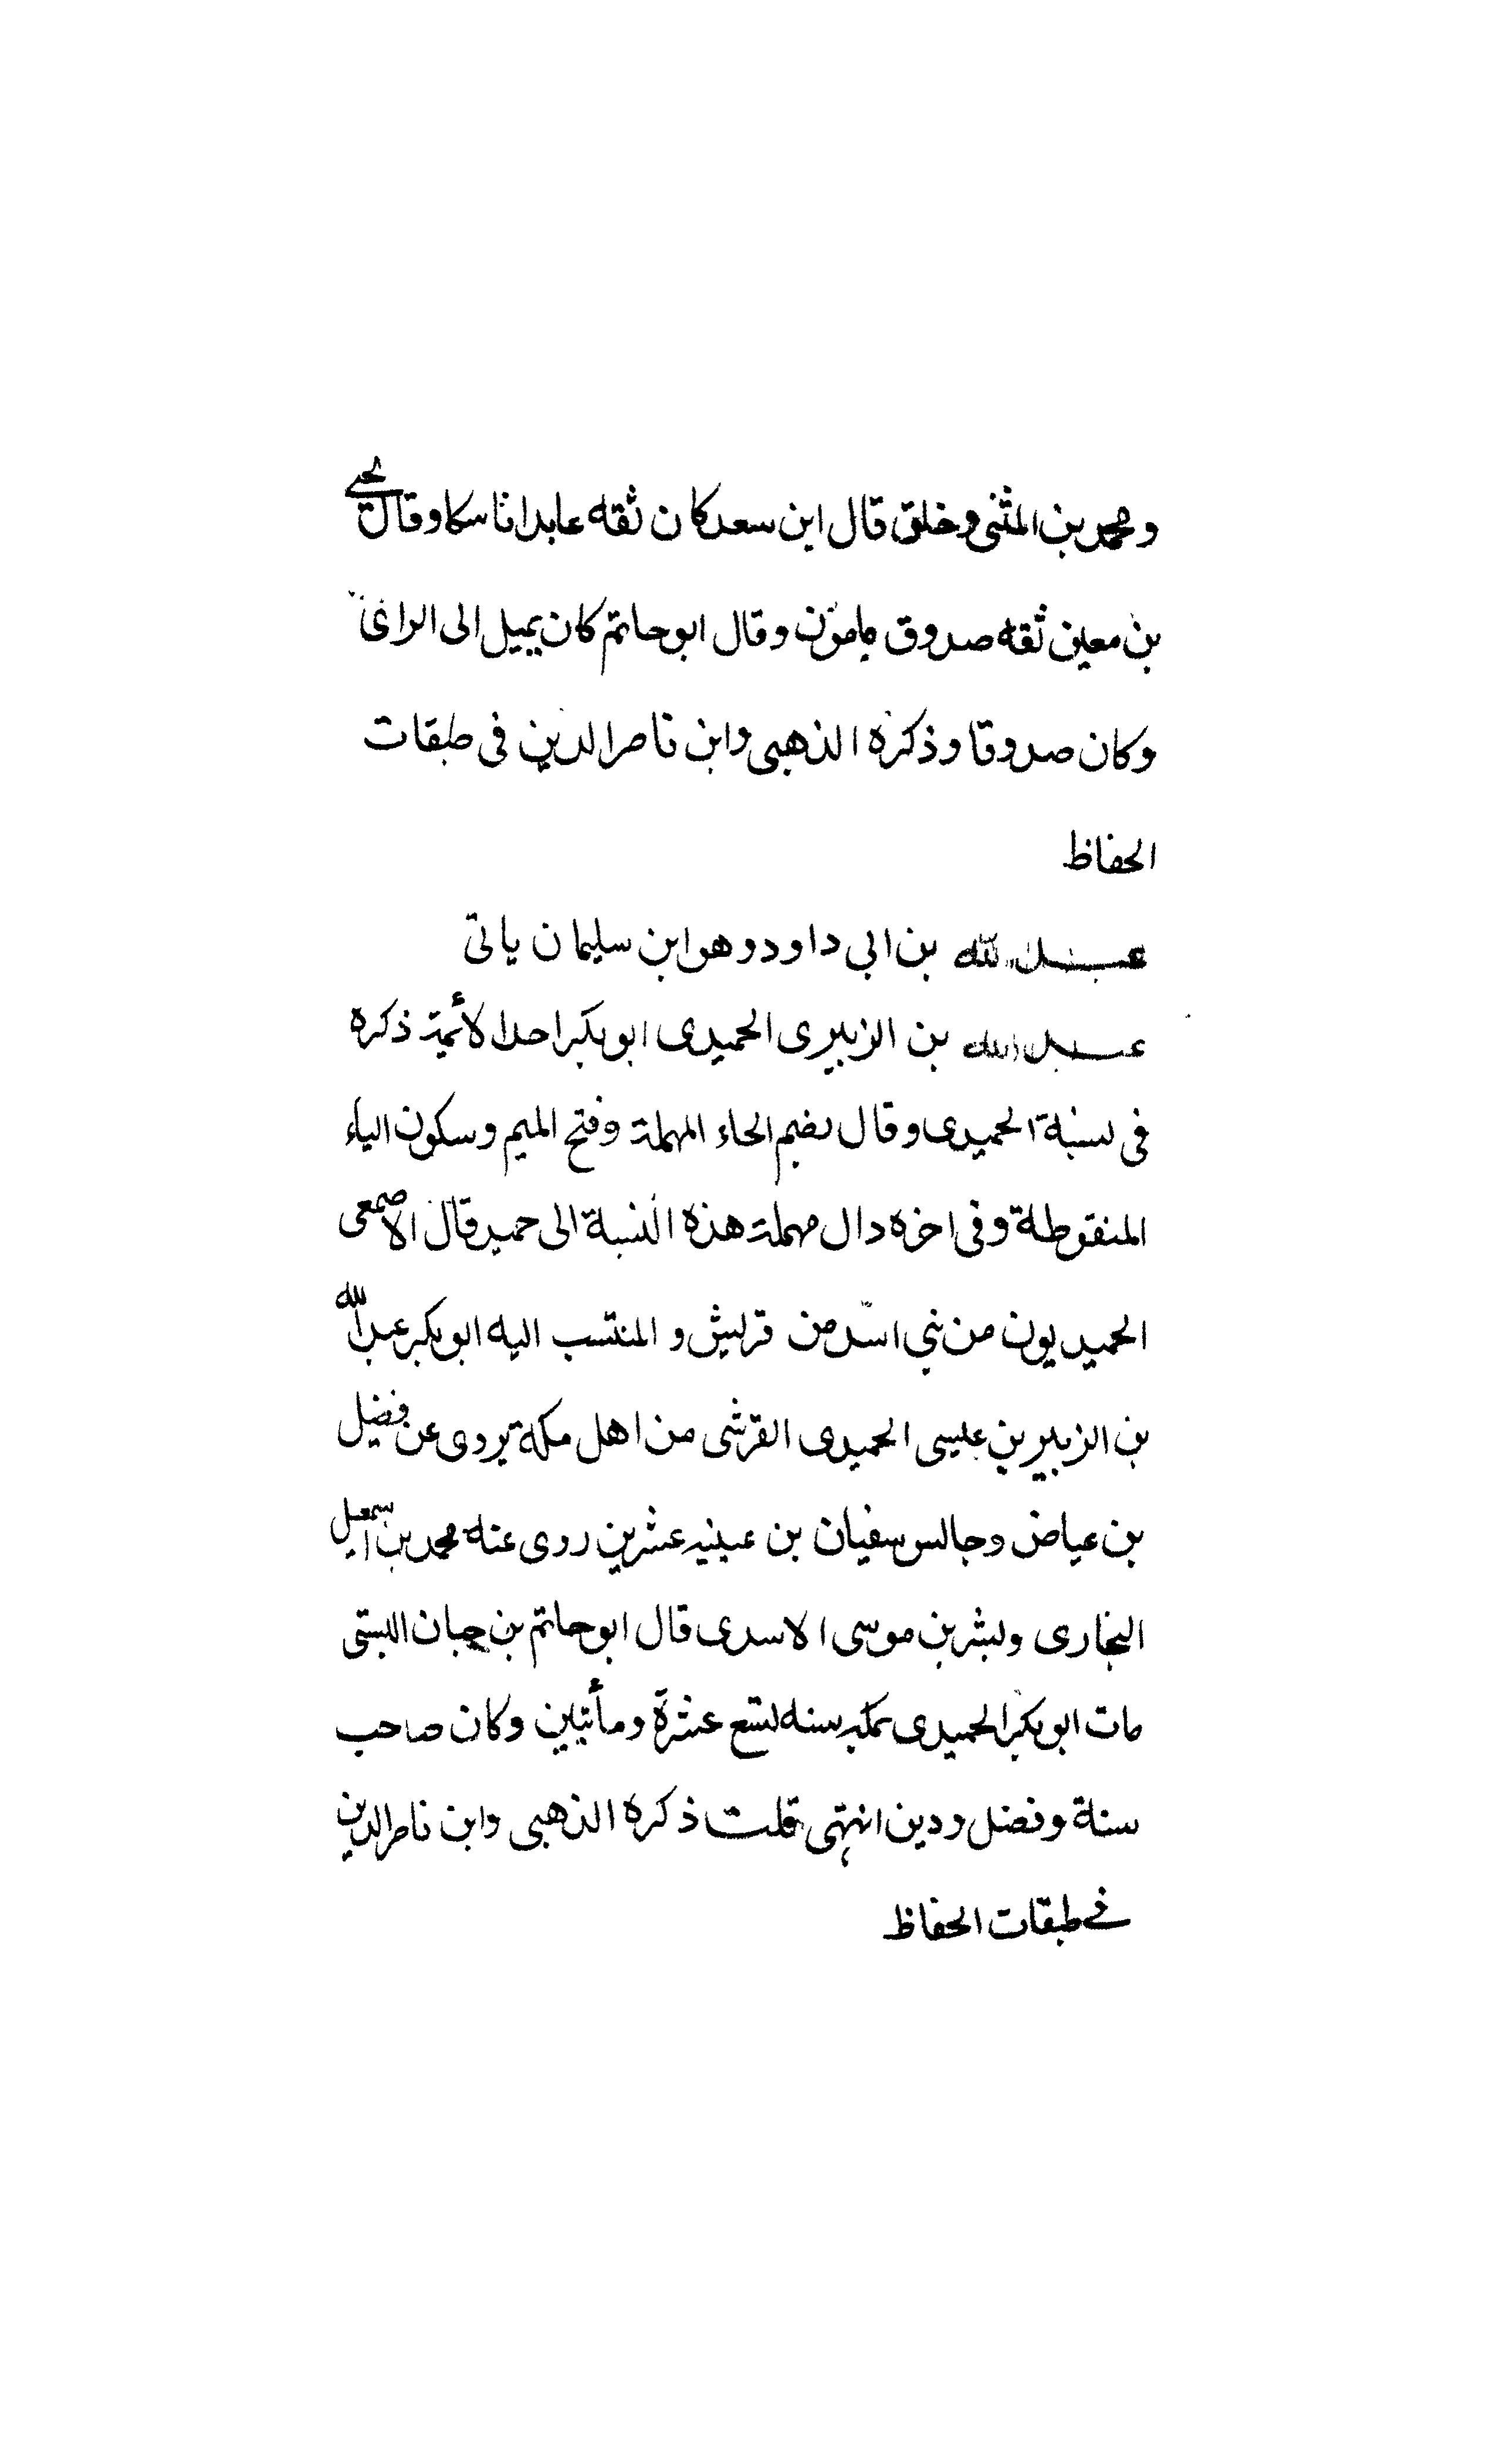 ومحمد بن المثنى وخلق قال ابن سعد كان ثقه عابدا ناسكا وقال يحيے
بن معين ثقه صدوق مامون وقال ابو حاتم كان يميل الى الرائ
وكان صدوقا وذكره الذهبى وابن ناصر الدين فى طبقات
الحفاظ
عبد الله بن ابى داود وهو ابن سليمان ياتى
عبد الله بن الزبيرى الحميدى ابو بكر احد الأئمة ذكره
فى نسبة الحميدى وقال بضم الحاء المهملة وفتح الميم وسكون الياء
المنقوطة وفى اخره دال مهملة هذه النسبة الى حميد قال الاصمعى
الحميديون من بني اسد من قريش و المنتسب اليه ابو بكر عبد الله
بن الزبير بن عيسى الحميدى القرشى من اهل مكة يروى عن فضيل
بن عياض وجالس سفيان بن عيينه عشرين روى عنه محمد بن اسمعيل
البخارى وبشر بن موسى الاسدى قال ابو حاتم بن حبان البستى
مات ابو بكر الحميدى بمكه سنه تسع عشرة ومأتيين وكان صاحب
سنة وفضل ودين انتهى قلت ذكره الذهبى وابن ناصر الدين
فے طبقات الحفاظ